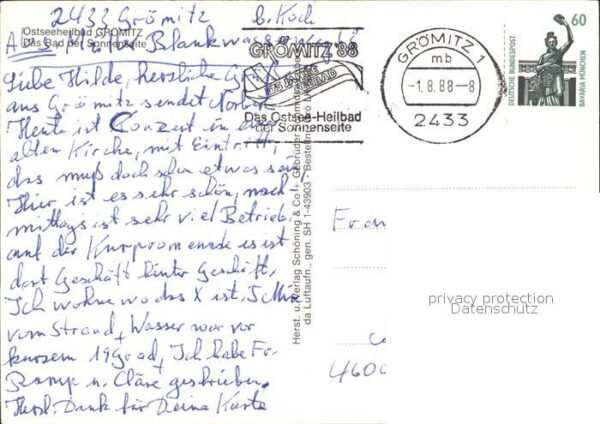 2433 Grömitz b. Koch
Ostseeheilbad GRÖMITZ
Das Bad der Sonnenseite
Am Blankwasser
Liebe Hilde, herzliche
aus Grömitz sendet
Heute ist Conzert in einer
alten Kirche, mit Eintritt,
das muß doch schon etwas sein
Hier ist es sehr schön, nach-
mittags ist sehr viel Betrieb,
auf der Kurpromenade es ist
dort Geschäft hinter Geschäft,
Ich wohne wo das X ist, 5 Min
vom Strand, Wasser war vor
kurzem 19 Grad, Ich habe Fr.
Ramp u. Cläre geschrieben.
Herzl. Dank für Deine Karte
GRÖMITZ '88
Das Ostsee-Heilbad
der Sonnenseite
GRÖMITZ 1
mb
-1.8.88-8
2433
60
DEUTSCHE BUNDESPOST
BAVARIA MÜNCHEN
Herst. u. Verlag Schöning & Co + Gebrüder Schmidt
da Luftaufn., gen. SH 1-43903 Bestell
Frau
privacy protection
Datenschutz
4600